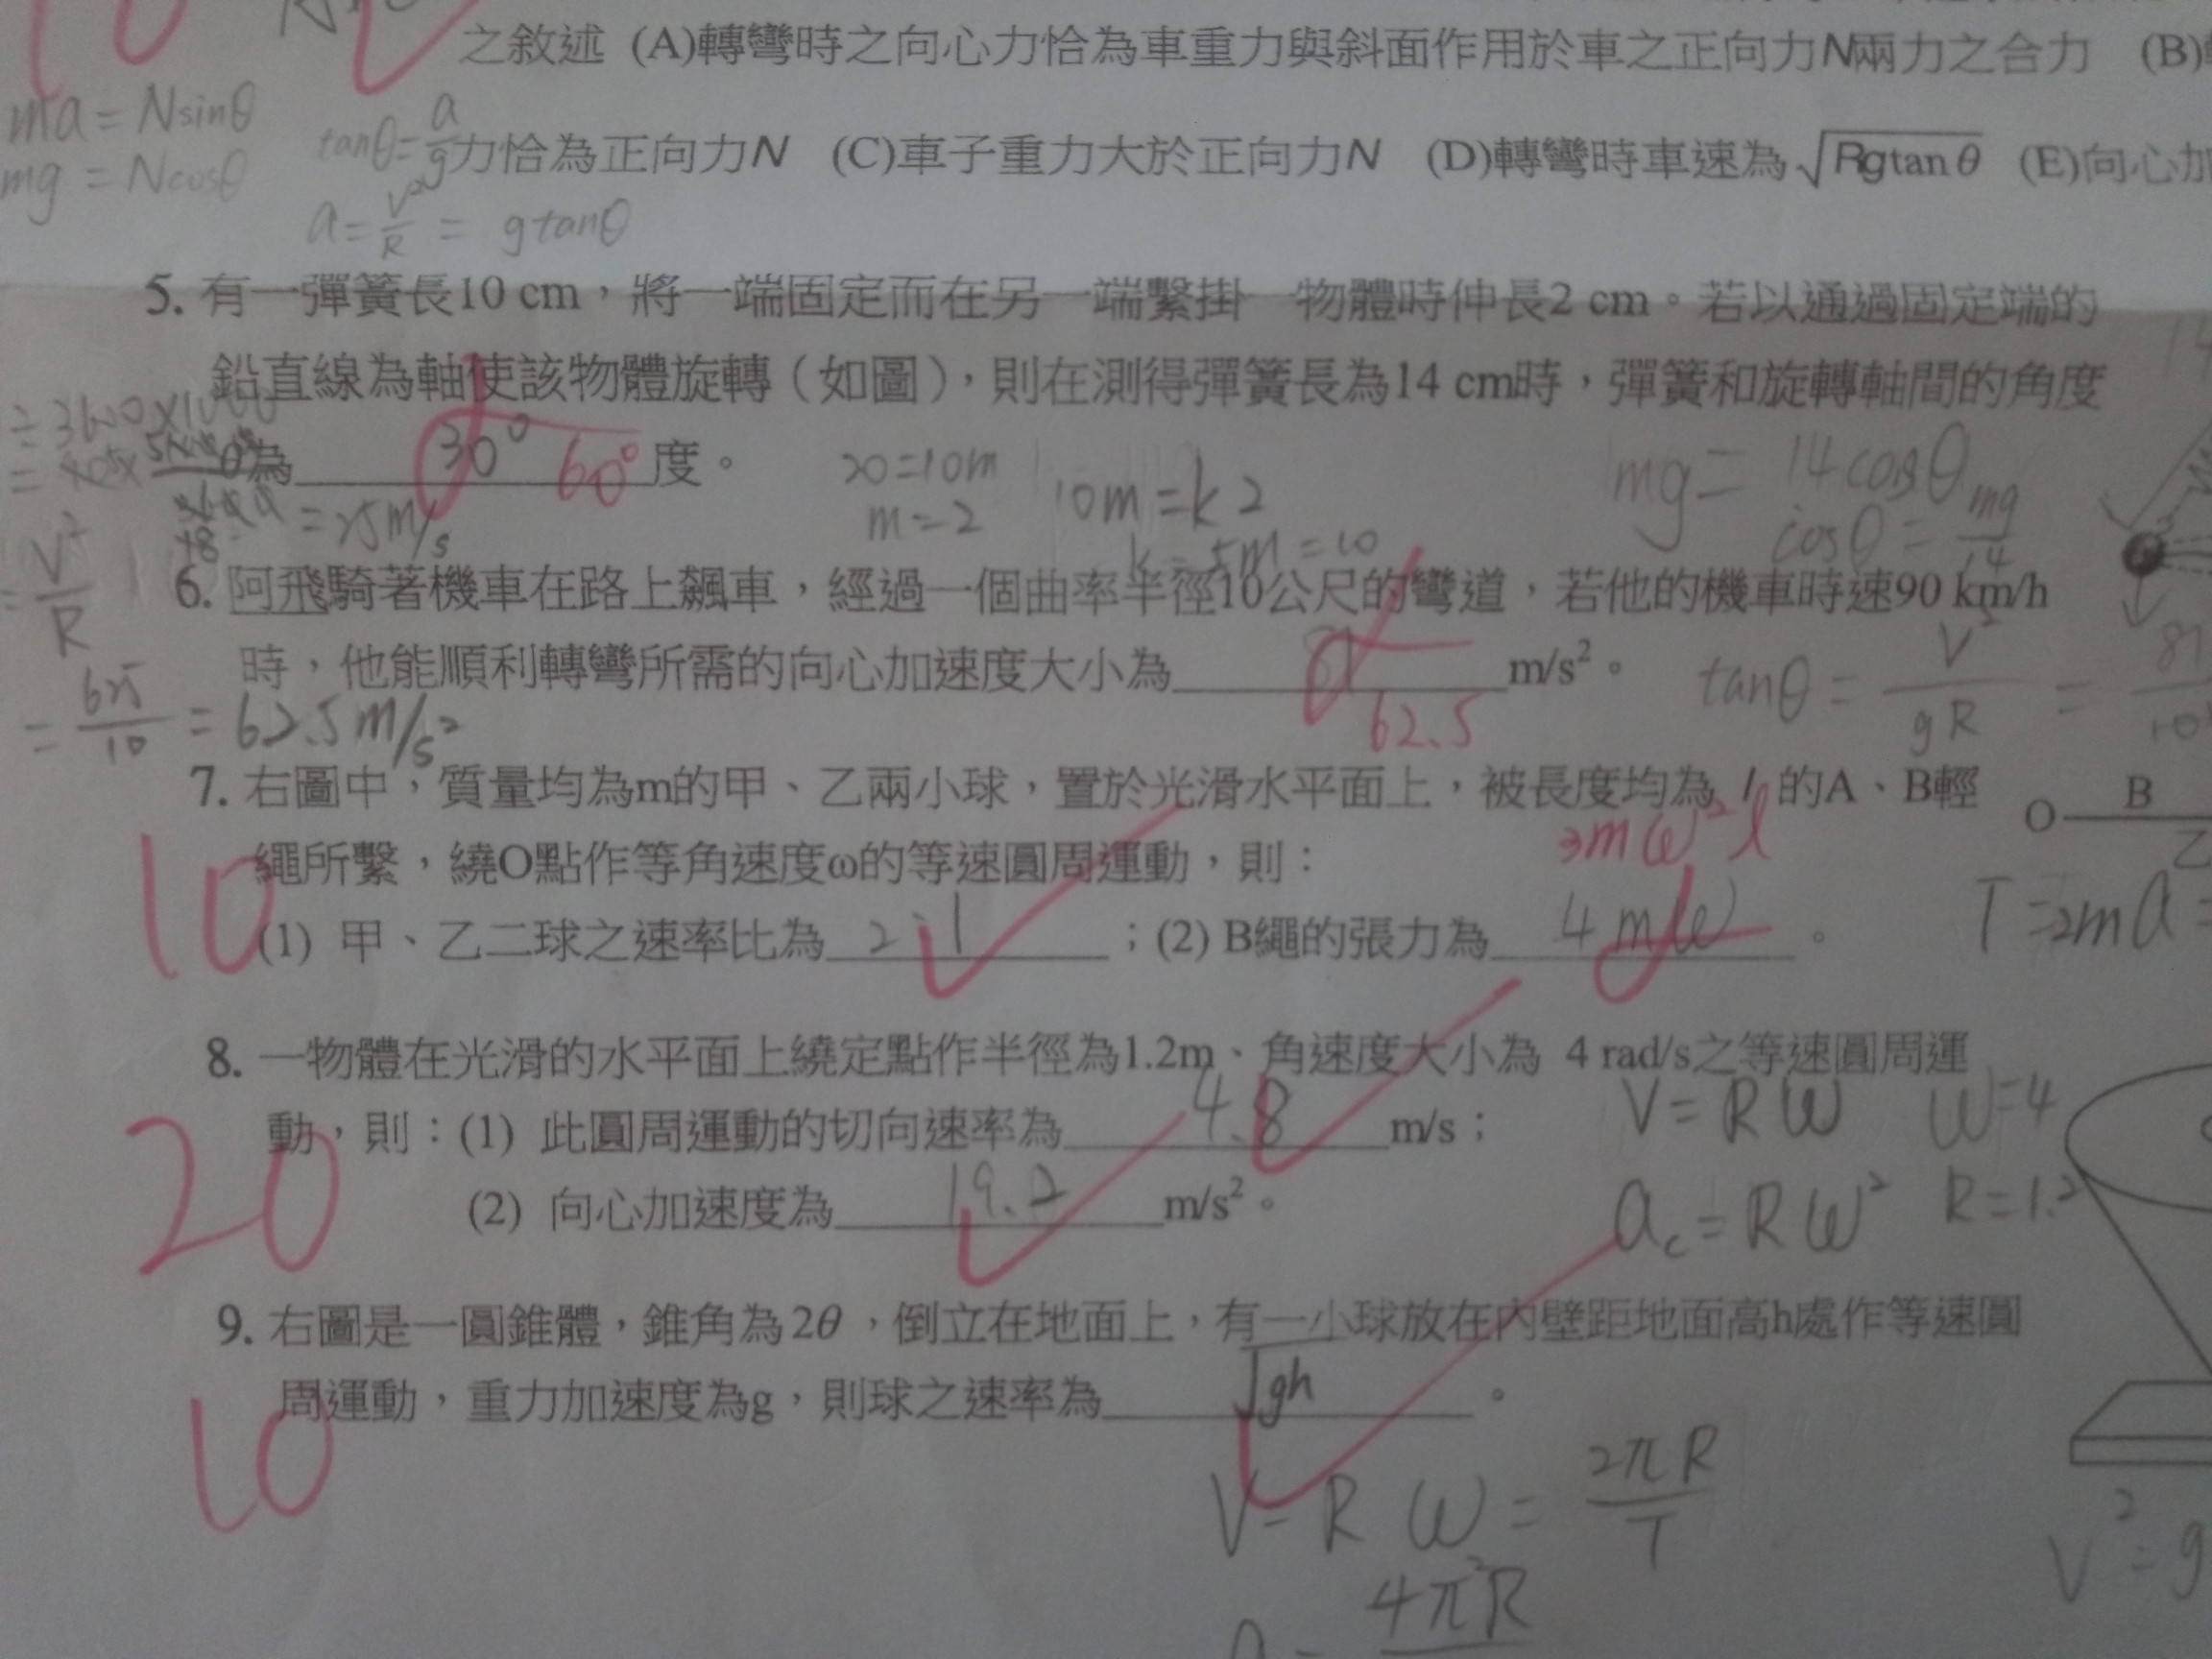 之敘述 (A)轉彎時之向心力恰為車重力與斜面作用於車之正向力N兩力之合力 (B)
ma = Nsinθ
mg = Ncosθ
tanθ = a/g
力恰為正向力N (C)車子重力大於正向力N (D)轉彎時車速為√Rgtanθ (E)向心加
a = V²/R = gtanθ
5. 有一彈簧長10 cm，將一端固定而在另一端繫掛一物體時伸長2 cm。若以通過固定端的
鉛直線為軸使該物體旋轉（如圖），則在測得彈簧長為14 cm時，彈簧和旋轉軸間的角度
θ為 30° 60° 度。
20=10m
m=2
10m=k2
k=5m=10
mg = 14cosθ
cosθ = mg/14
mg
= 25m/s
6. 阿飛騎著機車在路上飆車，經過一個曲率半徑10公尺的彎道，若他的機車時速90 km/h
時，他能順利轉彎所需的向心加速度大小為 81 62.5 m/s²。
V²/R
= 625/10 = 62.5m/s²
tanθ = V²/gR = 81
7. 右圖中，質量均為m的甲、乙兩小球，置於光滑水平面上，被長度均為 l 的A、B輕
繩所繫，繞O點作等角速度ω的等速圓周運動，則：
3mω²l
(1) 甲、乙二球之速率比為 2:1 ；(2) B繩的張力為 4mω 。
O B
乙
T=2ma=
8. 一物體在光滑的水平面上繞定點作半徑為1.2m、角速度大小為 4 rad/s之等速圓周運
動，則：(1) 此圓周運動的切向速率為 4.8 m/s；
V=Rω ω=4
(2) 向心加速度為 19.2 m/s²。
ac=Rω² R=1.2
9. 右圖是一圓錐體，錐角為2θ，倒立在地面上，有一小球放在內壁距地面高h處作等速圓
周運動，重力加速度為g，則球之速率為 √gh 。
V=Rω=2πR/T
V²=g
4π²R
10
20
10